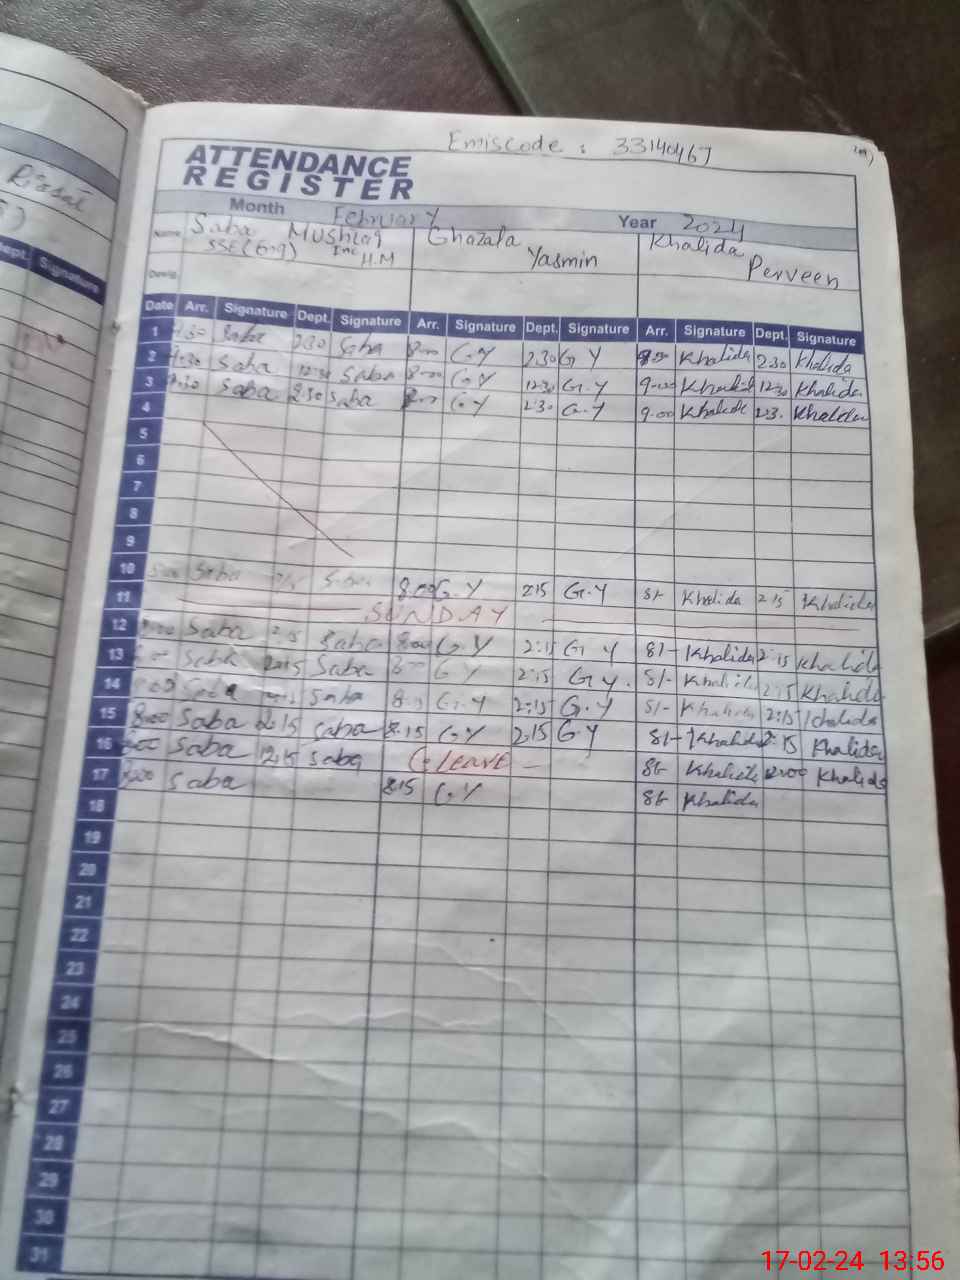 Emiscode : 33140467
ATTENDANCE
REGISTER
Month February Year 2024
Name Saba Mushtaq Ghazala Khalida
SSE(Eng) Inc H.M Yasmin Perveen
Date Arr. Signature Dept. Signature Arr. Signature Dept. Signature Arr. Signature Dept. Signature
1 7:30 Saba 2:30 Saba 8:00 G.Y 2.30 G Y Khalida 2:30 Khalida
2 7:30 Saba 12:30 Saba 8:00 G.Y 12:30 G.Y 9:00 Khalida 12:30 Khalida
3 7:30 Saba 2:30 Saba G.Y 2:30 G.Y 9.00 Khalida 2:3. Khalida
4
5
6
7
8
9
10 Saba Saba 8.00 G.Y 2:15 G.Y 8/- Khalida 2:15 Khalida
11 SUNDAY
12 8:00 Saba 2:15 Saba 8:00 G.Y 2:15 G.Y 8/- Khalida 2:15 Khalida
13 Saba 2:15 Saba 8:00 G.Y 2:15 G.Y. 8/- Khalida 2:15 Khalida
14 Saba Saba G.Y 2:15 G.Y 8/- Khalida 2:15 Khalida
15 8:00 Saba 2:15 Saba 8.15 G.Y 2.15 G Y 8/- Khalida 2:15 Khalida
16 8:00 Saba 12:15 Saba C.Leave - Khalida 12:00 Khalida
17 8:00 Saba 8:15 G.Y Khalida
18
19
20
21
22
23
24
25
26
27
28
29
30
31
Dept. Signature
17-02-24 13:56